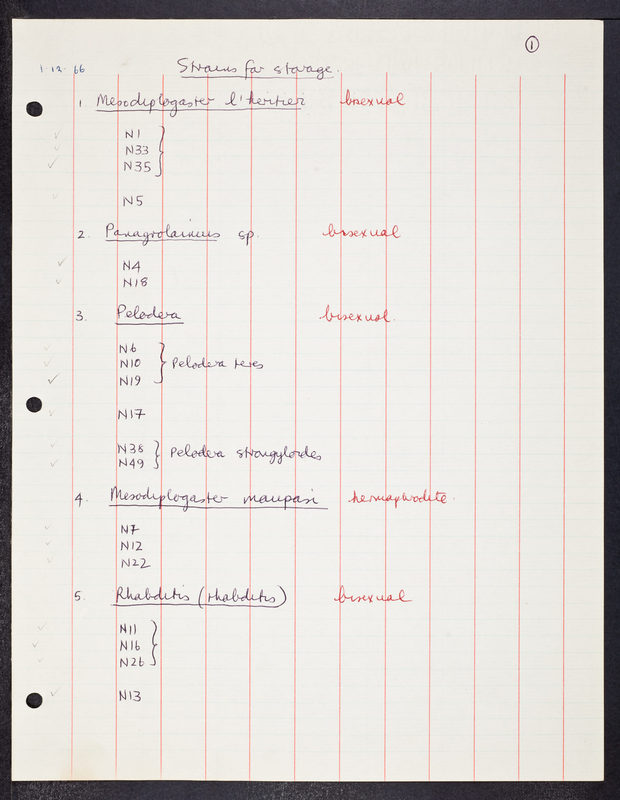 1
1.12.66 Strains for storage.
1 Mesodiplogaster l'heritier bisexual
N1
N33
N35
N5
2. Panagrolaimus sp. bisexual
N4
N18
3. Pelodera bisexual.
N6
N10 Pelodera teres
N19
N17
N38 Pelodera strongyloides
N49
4. Mesodiplogaster maupasi hermaphrodite.
N7
N12
N22
5. Rhabditis (rhabditis) bisexual
N11
N16
N26
N13